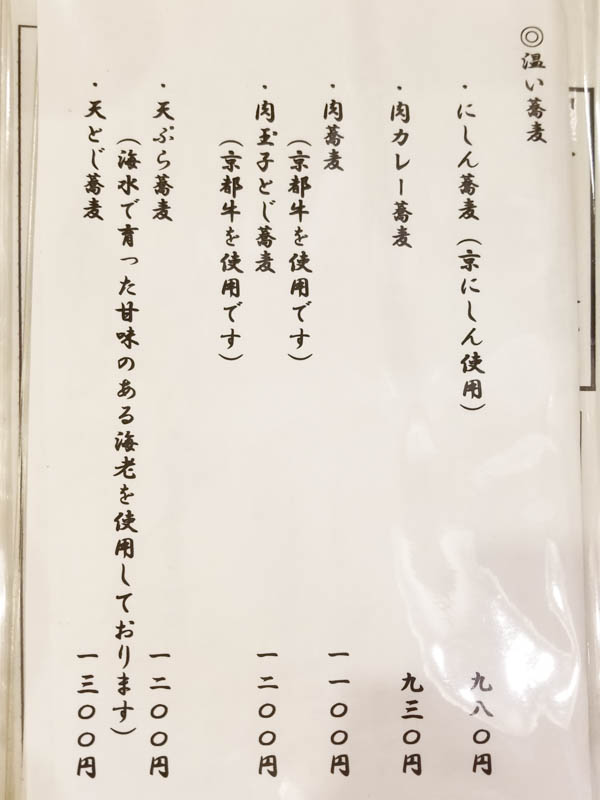 ◎温い蕎麦
・にしん蕎麦（京にしん使用）　九八〇円
・肉カレー蕎麦　九三〇円
・肉蕎麦　一一〇〇円
（京都牛を使用です）
・肉玉子とじ蕎麦　一二〇〇円
（京都牛を使用です）
・天ぷら蕎麦　一二〇〇円
（海水で育った甘味のある海老を使用しております）
・天とじ蕎麦　一三〇〇円